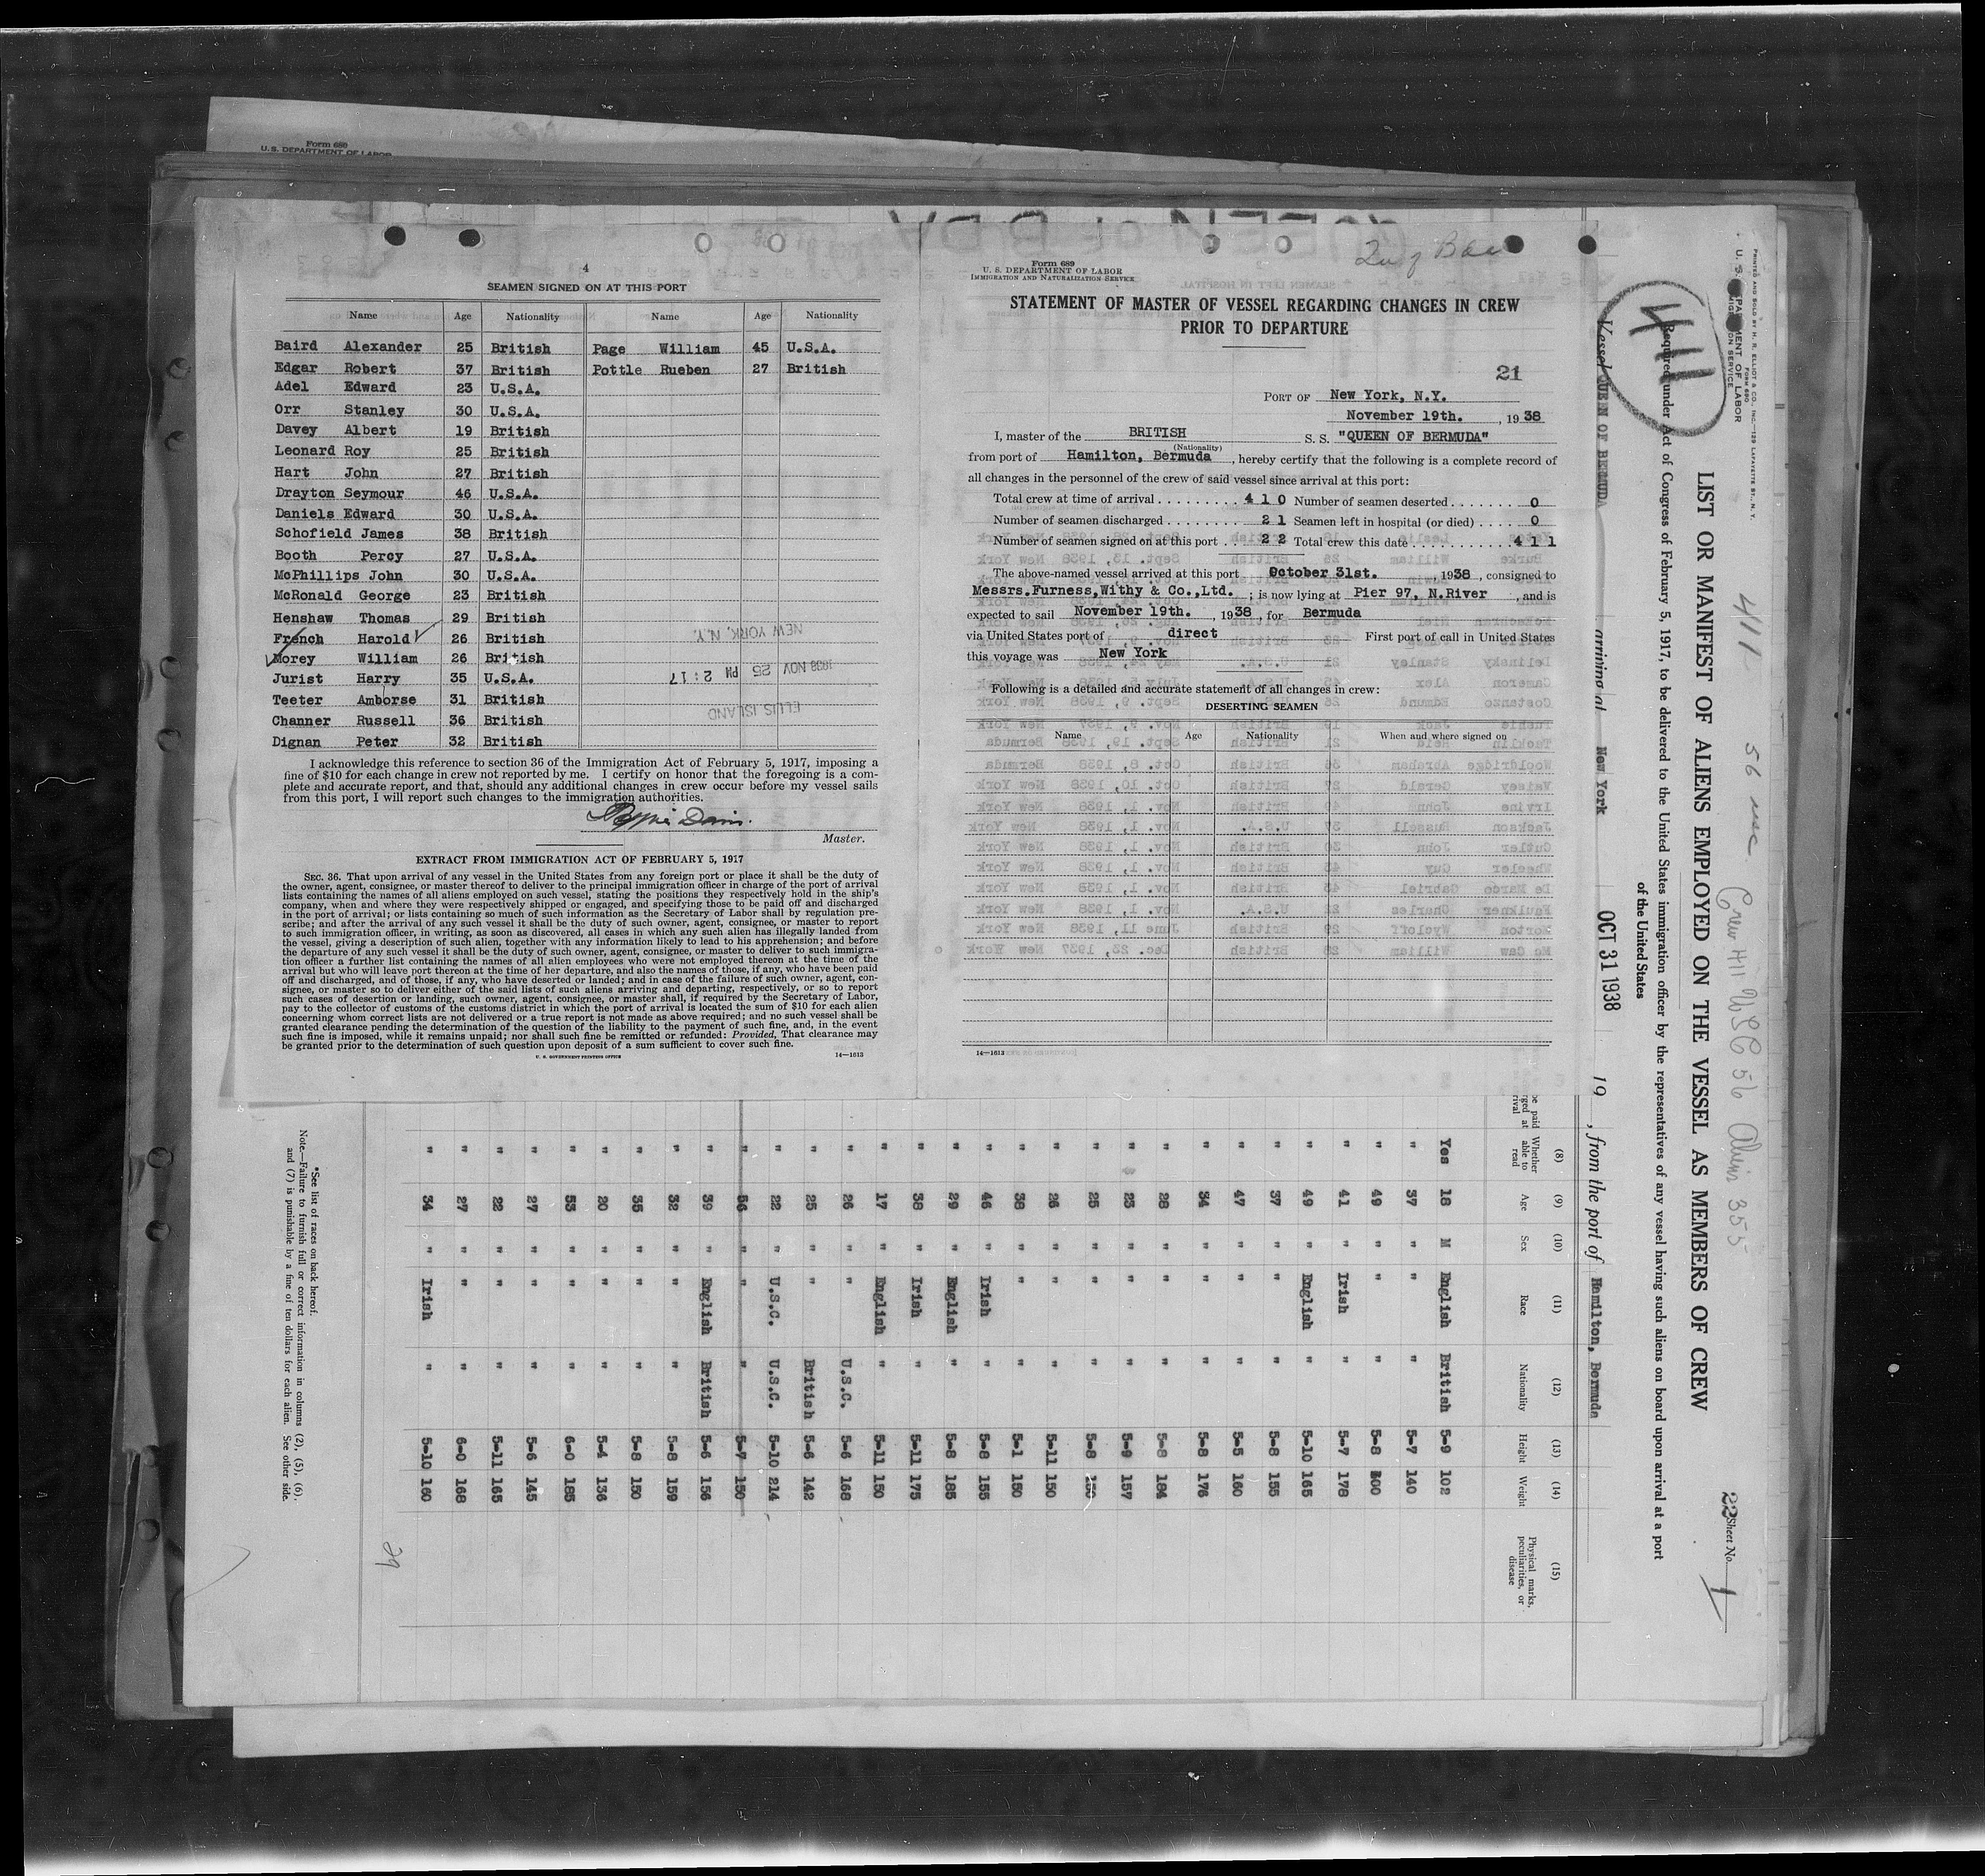 Form 680
U. S. DEPARTMENT OF LABOR
4
SEAMEN SIGNED ON AT THIS PORT
Name Age Nationality Name Age Nationality
Baird Alexander 25 British Page William 45 U.S.A.
Edgar Robert 37 British Pottle Rueben 27 British
Adel Edward 23 U.S.A.
Orr Stanley 30 U.S.A.
Davey Albert 19 British
Leonard Roy 25 British
Hart John 27 British
Drayton Seymour 46 U.S.A.
Daniels Edward 30 U.S.A.
Schofield James 38 British
Booth Percy 27 U.S.A.
McPhillips John 30 U.S.A.
McRonald George 23 British
Henshaw Thomas 29 British
French Harold 26 British
Morey William 26 British
Jurist Harry 35 U.S.A.
Teeter Amborse 31 British
Channer Russell 36 British
Dignan Peter 32 British
NEW YORK, N.Y.
1938 NOV 25 PM 2:17
ELLIS ISLAND
I acknowledge this reference to section 36 of the Immigration Act of February 5, 1917, imposing a
fine of $10 for each change in crew not reported by me. I certify on honor that the foregoing is a com-
plete and accurate report, and that, should any additional changes in crew occur before my vessel sails
from this port, I will report such changes to the immigration authorities.
Davis.
Master.
EXTRACT FROM IMMIGRATION ACT OF FEBRUARY 5, 1917
SEC. 36. That upon arrival of any vessel in the United States from any foreign port or place it shall be the duty of
the owner, agent, consignee, or master thereof to deliver to the principal immigration officer in charge of the port of arrival
lists containing the names of all aliens employed on such vessel, stating the positions they respectively hold in the ship's
company, when and where they were respectively shipped or engaged, and specifying those to be paid off and discharged
in the port of arrival; or lists containing so much of such information as the Secretary of Labor shall by regulation pre-
scribe; and after the arrival of any such vessel it shall be the duty of such owner, agent, consignee, or master to report
to such immigration officer, in writing, as soon as discovered, all cases in which any such alien has illegally landed from
the vessel, giving a description of such alien, together with any information likely to lead to his apprehension; and before
the departure of any such vessel it shall be the duty of such owner, agent, consignee, or master to deliver to such immigra-
tion officer a further list containing the names of all alien employees who were not employed thereon at the time of the
arrival but who will leave port thereon at the time of her departure, and also the names of those, if any, who have been paid
off and discharged, and of those, if any, who have deserted or landed; and in case of the failure of such owner, agent, con-
signee, or master so to deliver either of the said lists of such aliens arriving and departing, respectively, or so to report
such cases of desertion or landing, such owner, agent, consignee, or master shall, if required by the Secretary of Labor,
pay to the collector of customs of the customs district in which the port of arrival is located the sum of $10 for each alien
concerning whom correct lists are not delivered or a true report is not made as above required; and no such vessel shall be
granted clearance pending the determination of the question of the liability to the payment of such fine, and, in the event
such fine is imposed, while it remains unpaid; nor shall such fine be remitted or refunded: Provided, That clearance may
be granted prior to the determination of such question upon deposit of a sum sufficient to cover such fine.
U. S. GOVERNMENT PRINTING OFFICE 14—1613
Form 689
U. S. DEPARTMENT OF LABOR
IMMIGRATION AND NATURALIZATION SERVICE
STATEMENT OF MASTER OF VESSEL REGARDING CHANGES IN CREW
PRIOR TO DEPARTURE
21
PORT OF New York, N.Y.
November 19th. , 1938
I, master of the BRITISH S. S. "QUEEN OF BERMUDA"
(Nationality)
from port of Hamilton, Bermuda , hereby certify that the following is a complete record of
all changes in the personnel of the crew of said vessel since arrival at this port:
Total crew at time of arrival . . . . . . . . . 4 1 0 Number of seamen deserted . . . . . . . 0
Number of seamen discharged . . . . . . . . 2 1 Seamen left in hospital (or died) . . . . 0
Number of seamen signed on at this port . . 2 2 Total crew this date . . . . . . . . . . . 4 1 1
The above-named vessel arrived at this port October 31st. , 1938 , consigned to
Messrs.Furness,Withy & Co.,Ltd. ; is now lying at Pier 97, N.River , and is
expected to sail November 19th. , 1938 , for Bermuda
via United States port of direct First port of call in United States
this voyage was New York
Following is a detailed and accurate statement of all changes in crew:
DESERTING SEAMEN
Name Age Nationality When and where signed on
14—1613
PRINTED AND SOLD BY H. R. ELLIOT & CO., INC.—129 LAFAYETTE ST., N. Y.
FORM 680
411
411
56 usc
Crew 411 USC 56 Aliens 355
22 Sheet No. 1
LIST OR MANIFEST OF ALIENS EMPLOYED ON THE VESSEL AS MEMBERS OF CREW
Required under Act of Congress of February 5, 1917, to be delivered to the United States immigration officer by the representatives of any vessel having such aliens on board upon arrival at a port
of the United States
Vessel QUEEN OF BERMUDA arriving at New York OCT 31 1938 19 , from the port of Hamilton, Bermuda
(8) (9) (10) (11) (12) (13) (14) (15)
Whether able to read Age Sex Race Nationality Height Weight Physical marks, peculiarities, or disease
Yes 18 M English British 5-9 102
" 37 " " " 5-7 140
" 49 " " " 5-8
" 41 " Irish " 5-7 178
" 49 " English " 5-10 165
" 37 " " " 5-8 155
" 47 " " " 5-5 160
" 34 " " " 5-8 176
" 28 " " " 5-8 184
" 23 " " " 5-9 157
" 25 " " " 5-8
" 26 " " " 5-11 150
" 38 " " " 5-1 150
" 46 " Irish " 5-8 155
" 29 " English " 5-8 185
" 38 " Irish " 5-11 175
" 17 " English " 5-11 150
" 26 " " U.S.C. 5-6 168
" 25 " " British 5-6 142
" 22 " U.S.C. U.S.C. 5-10 214
" 56 " " " 5-7 150
" 39 " English British 5-6 156
" 32 " " " 5-8 159
" 35 " " " 5-8 150
" 20 " " " 5-4 136
" 53 " " " 6-0 185
" 27 " " " 5-6 145
" 22 " " " 5-11 165
" 27 " " " 6-0 168
" 34 " Irish " 5-10 160
29
*See list of races on back hereof.
Note.—Failure to furnish full or correct information in columns (2), (5), (6),
and (7) is punishable by a fine of ten dollars for each alien. See other side.